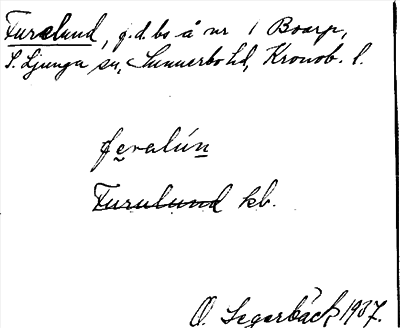 Furelund, g.d. bs å nr 1 Boarp,
S. Ljunga sn, Sunnerbo hd, Kronob. l.
fęralún
Furulund kb.
O. Segerbäck 1937.